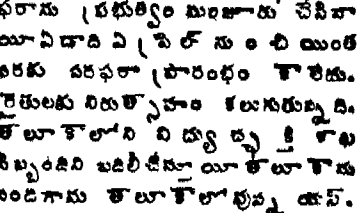 ఫరాను ప్రభుత్వం మంజూరు చేసినా
యీ ఏడాది ఏప్రిల్ నుంచి యింత
వరకు సరఫరా ప్రారంభం కాలేదు.
రైతులకు నిరుత్సాహం కలుగుతున్నది.
తాలూకాలోని విద్యుచ్ఛక్తి శాఖ
సిబ్బందిని బదిలీచేస్తూ యీ తాలూకాను
దండిగాను తాలూకాలో వున్న యస్.